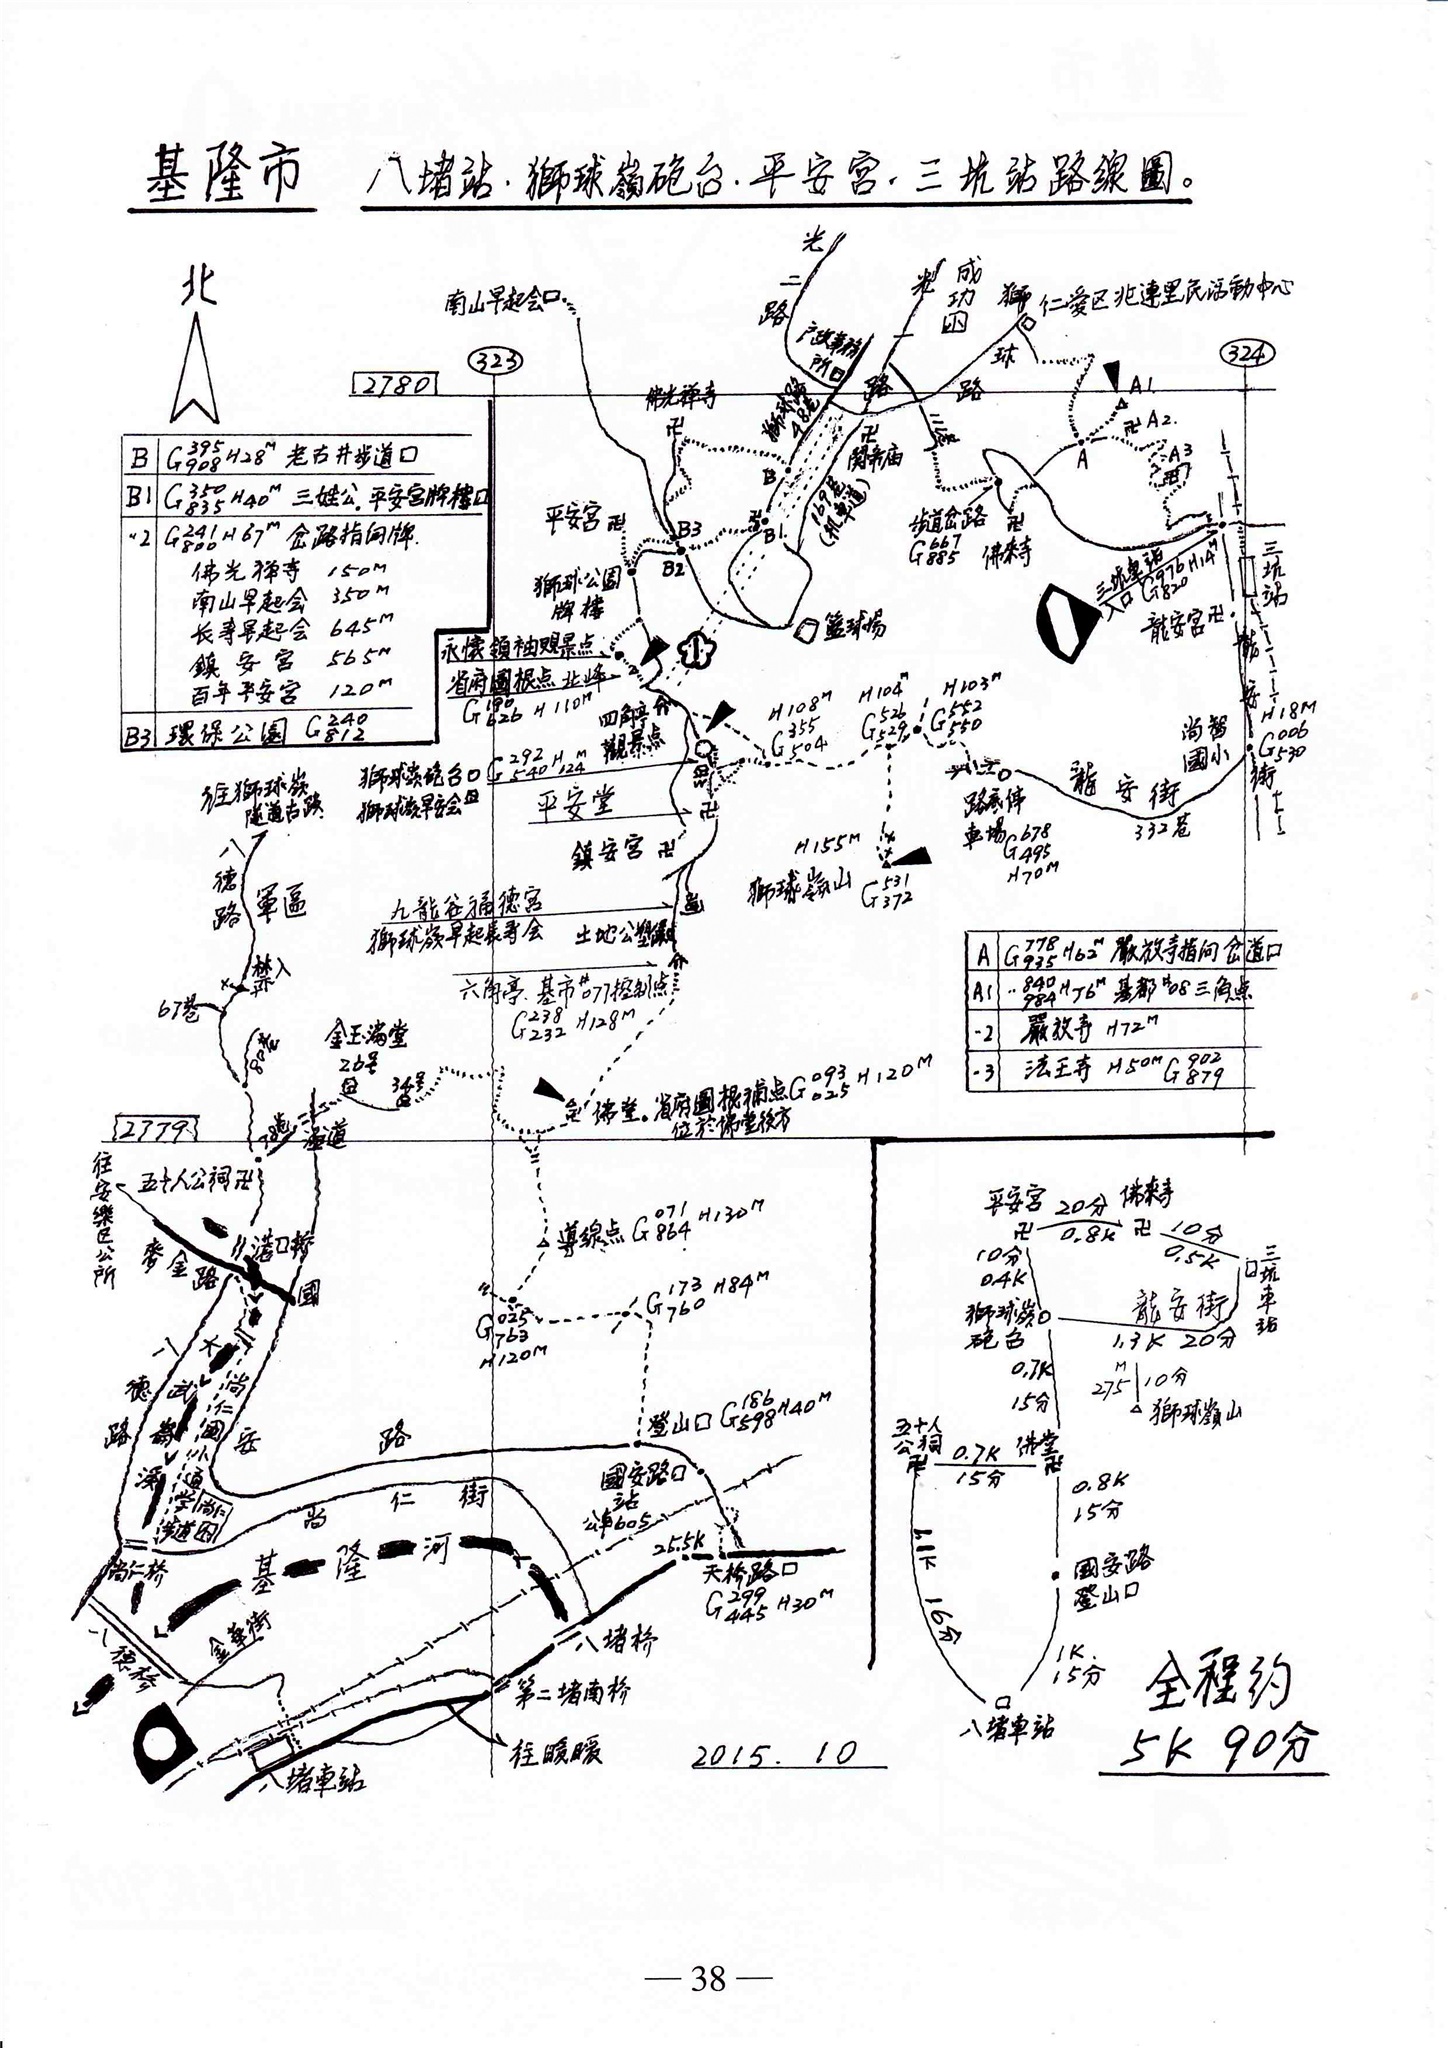 基隆市 八堵站.獅球嶺砲台.平安宮.三坑站路線圖。
北
南山早起会口
光二路
戶政事務所口
成功国
獅球路
仁愛区兆連里民活動中心
323
324
2780
佛光禅寺
獅球路48巷
關帝庙
169巷(机車道)
A1
A2
A3
A
B G395 908 H28M 老古井步道口
B1 G350 835 H40M 三姓公.平安宮牌樓口
-2 G241 800 H67M 岔路指向牌.
佛光禅寺 150M
南山早起会 350M
長寿早起会 645M
鎮安宮 565M
百年平安宮 120M
B3 環保公園 G240 812
平安宮
B3
B2
B
B1
步道岔路 G667 885
佛來寺
三坑車站入口 G976 820 H14M
三坑站
龍安宮
獅球公園牌樓
籃球場
永懷領袖觀景点
省府圖根点 北峰
G190 626 H110M
四角亭
觀景点
H108M G355 504
H104M G526 529
H103M G552 550
尚智國小
H18M G006 530
龍安街
往獅球嶺隧道古蹟
獅球嶺砲台口 G292 540 H124M
獅球嶺早安会
平安堂
鎮安宮
路底停車場 G678 495 H70M
龍安街
332巷
八德路
軍區
禁入
H155M
獅球嶺山
G531 372
九龍谷福德宮
獅球嶺早起長寿会
土地公塑像
六角亭.基市#077控制点
G238 232 H128M
67巷
金玉滿堂
26号
34号
A G778 935 H62M 嚴放寺指向岔道口
A1 ..840 984 H76M 基都#08三角点
-2 嚴放寺 H72M
-3 法王寺 H50M G902 879
佛堂。省府圖根補点G093 025 H120M
位於佛堂後方
2779
78巷
往安樂区公所
五十人公祠
麥金路
港口桥
導線点 G071 864 H130M
G025 763 H120M
G173 760 H84M
八德路
大武崙溪
尚仁國小通学步道
尚仁国
國安路
尚仁街
登山口 G186 598 H40M
國安路口站
公車605
25.5K
天橋路口
G299 445 H30M
尚仁桥
基隆河
金華街
八德桥
八堵桥
第二堵南桥
往暖暖
八堵車站
2015.10
平安宮 20分 0.8K 佛來寺
10分 0.5K
三坑車站
10分
0.4K
獅球嶺砲台
龍安街
1.3K 20分
0.7K
15分
275M 10分
獅球嶺山
五十人公祠 0.7K 15分 佛堂
0.8K
15分
1.1K 16分
國安路登山口
1K.
15分
八堵車站
全程约
5K 90分
— 38 —